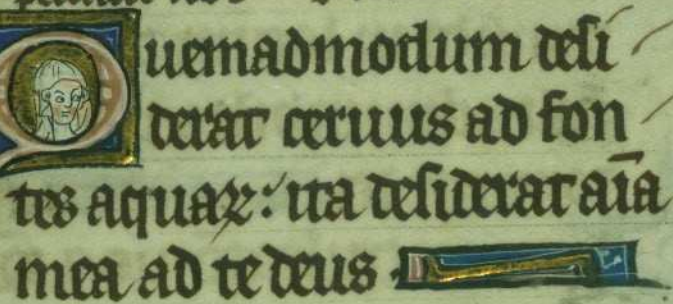 Quemadmodum desi
derat ceruus ad fon
tes aquaꝝ: ita desiderat aīa
mea ad te deus.